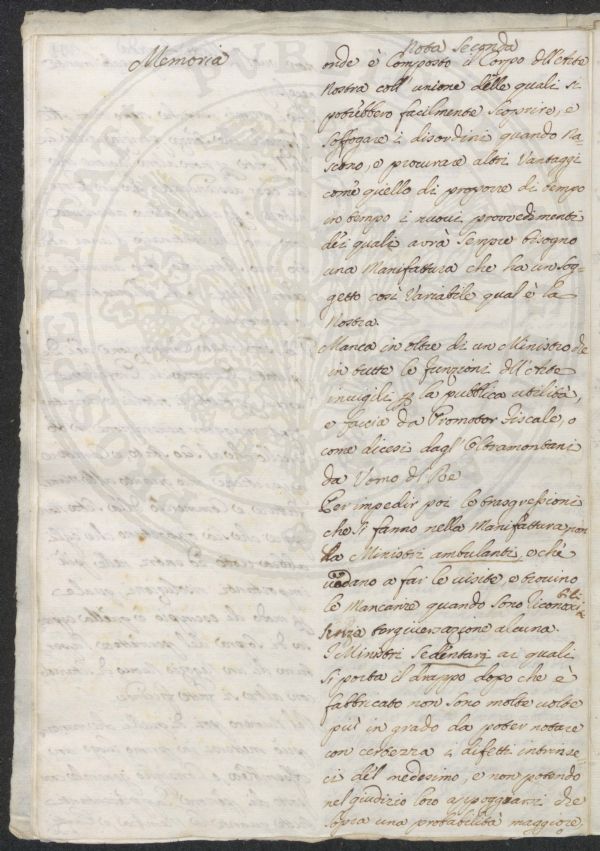 Memoria
Nota Seconda
onde è Composto il Corpo dell'Arte
Nostra coll'unione delle quali si
potrebbero facilmente scoprire, e
soffogare i disordini quando na-
scono, e procurare altri Vantaggi
come quello di proporre di tempo
in tempo i nuovi provvedimenti
dei quali avrà sempre bisogno
una Manifattura che ha un sog-
getto così Variabile qual'è la
Nostra.
Manca in oltre di un Ministro che
in tutte le funzioni dell'Arte
invigili p la pubblica utilità,
e facia da Promotor Fiscale, o
come dicesi dagl'Oltramontani
da Uomo di Re
Per impedir poi le trasgressioni
che si fanno nella Manifattura non
ha Ministri ambulanti, e che
vadano a far le visite e trovino
le Mancanze quando sono riconosci
bili
senza tergiversazione alcuna.
I Ministri sedentarj ai quali
si porta il drappo dopo che è
fabbricato non sono molte volte
più in grado da poter notare
con certezza i difetti intrinse-
ci del medesimo, e non potendo
nel giudizio loro appoggiarsi che
sopra una probabilità maggiore,